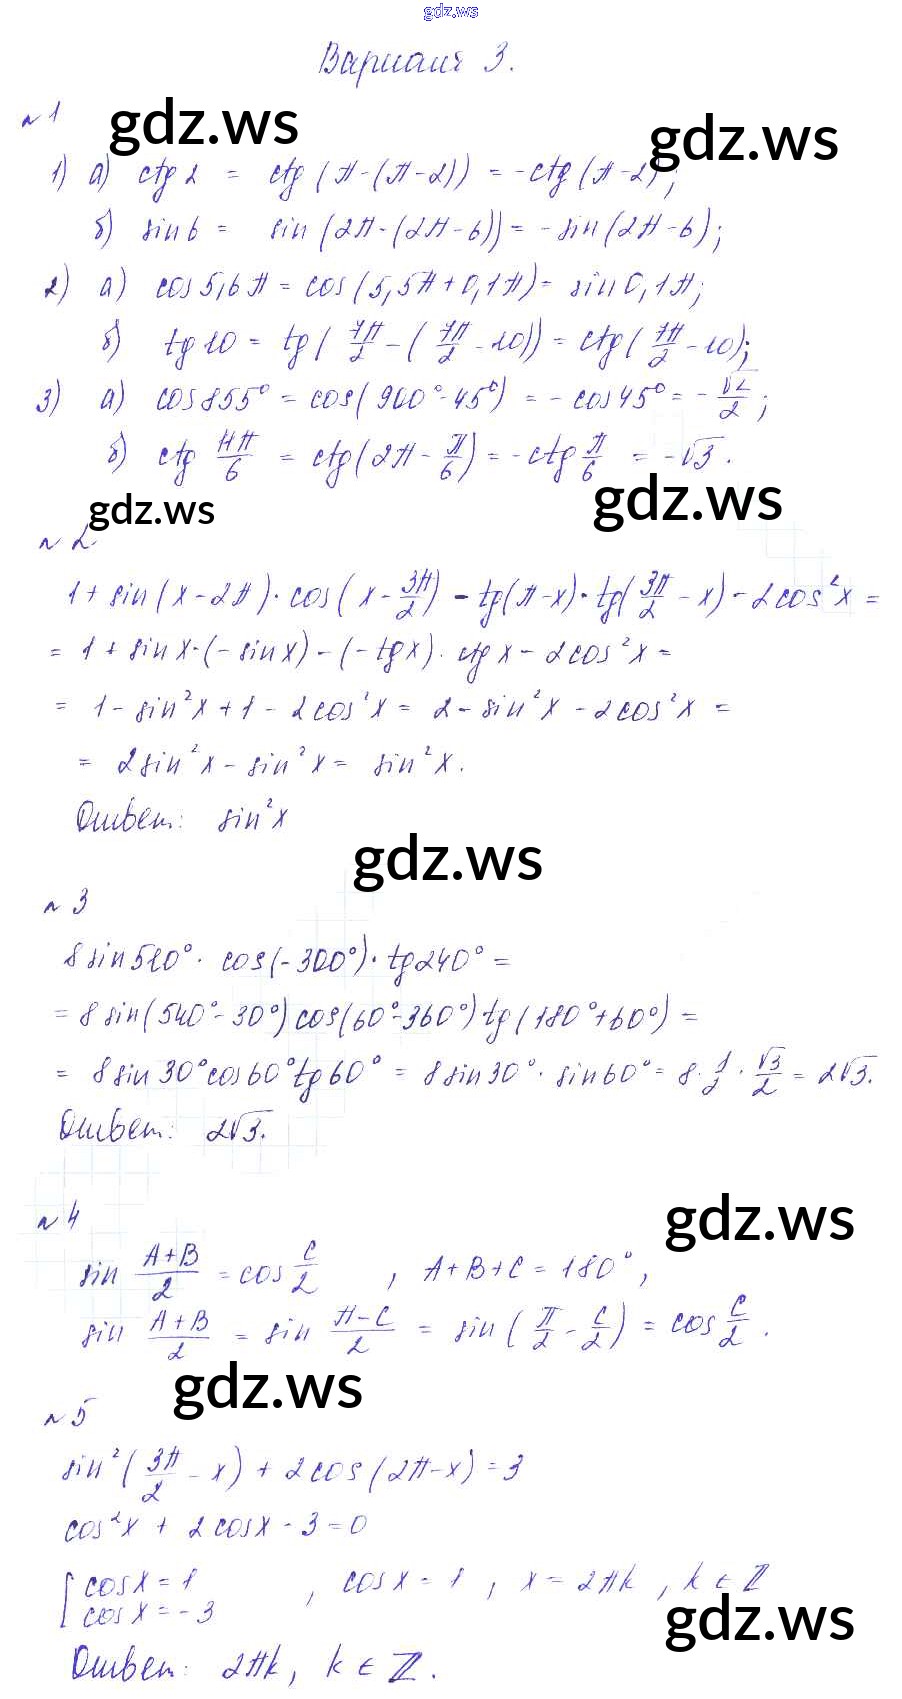 gdz.ws
Вариант 3.
№1
gdz.ws
gdz.ws
1) а) ctg 2 = ctg(π-(π-2)) = -ctg(π-2);
б) sin 6 = sin(2π-(2π-6)) = -sin(2π-6);
2) а) cos 5,6π = cos(5,5π+0,1π) = sin 0,1π;
б) tg 10 = tg(7π/2 - (7π/2 - 10)) = ctg(7π/2 - 10);
3) а) cos 855° = cos(900°-45°) = -cos 45° = -√2/2;
б) ctg 11π/6 = ctg(2π - π/6) = -ctg π/6 = -√3.
gdz.ws
gdz.ws
№2
1 + sin(x-2π)·cos(x - 3π/2) - tg(π-x)·tg(3π/2 - x) - 2cos²x =
= 1 + sin x·(-sin x) - (-tg x)·ctg x - 2cos²x =
= 1 - sin²x + 1 - 2cos²x = 2 - sin²x - 2cos²x =
= 2sin²x - sin²x = sin²x.
Ответ: sin²x
gdz.ws
№3
8 sin 510°·cos(-300°)·tg 240° =
= 8 sin(540°-30°) cos(60°-360°) tg(180°+60°) =
= 8 sin 30° cos 60° tg 60° = 8 sin 30°·sin 60° = 8·1/2·√3/2 = 2√3.
Ответ: 2√3.
gdz.ws
№4
sin (A+B)/2 = cos C/2, A+B+C = 180°,
sin (A+B)/2 = sin (π-C)/2 = sin(π/2 - C/2) = cos C/2.
gdz.ws
№5
sin²(3π/2 - x) + 2cos(2π-x) = 3
cos²x + 2cos x - 3 = 0
[cos x = 1, cos x = 1, x = 2πk, k ∈ ℤ
cos x = -3
gdz.ws
Ответ: 2πk, k ∈ ℤ.